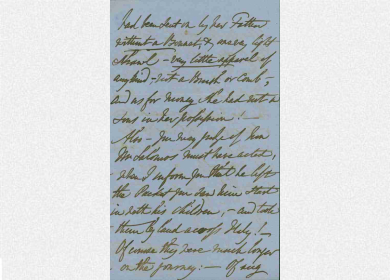 had been sent on by her Father
without a Bonnet, & in a very light
Shawl – very little apparel of
any kind – not a Brush or Comb –,
and as for money she had not a
Sous in her possession! –
Also – you may judge of how
Mr Salomos must have acted,
– when I inform you that he left
the Packet you saw him start
in with his children, – and took
them by land across Italy! –
Of course they were much longer
on the journey: – Of